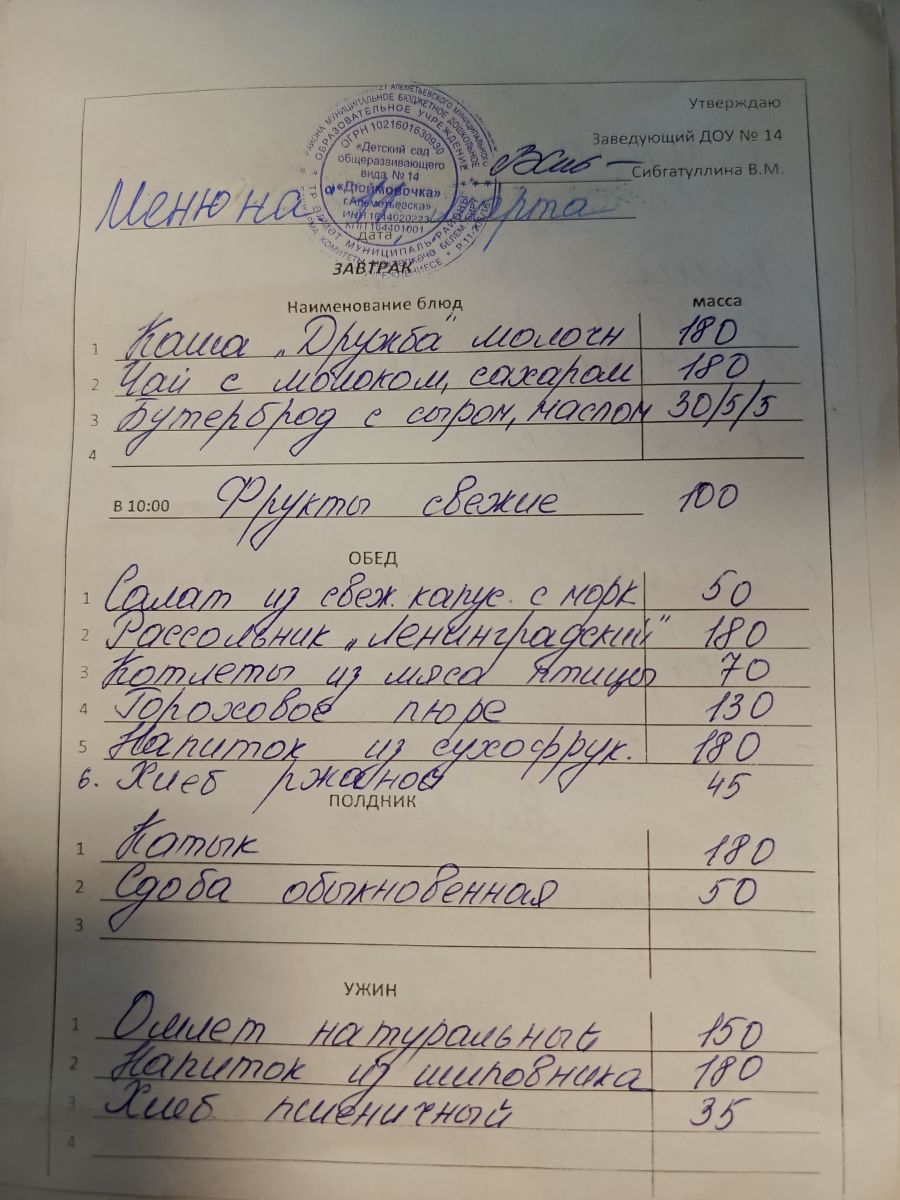 Утверждаю
Заведующий ДОУ № 14
Сибгатуллина В.М.
ОГРН 1021601630930
«Детский сад
общеразвивающего
вида № 14
«Дюймовочка»
г.Альметьевска»
ИНН 1644020223
КПП 164401001
Меню на марта
дата
ЗАВТРАК
Наименование блюд масса
1 Каша „Дружба" молочн 180
2 Чай с молоком, сахаром 180
3 Бутерброд с сыром, маслом 30/5/5
4
В 10:00 Фрукты свежие 100
ОБЕД
1 Салат из свеж. капус. с морк 50
2 Рассольник „Ленинградский" 180
3 Котлеты из мяса птицы 70
4 Гороховое пюре 130
5 Напиток из сухофрук. 180
6. Хлеб ржаной 45
ПОЛДНИК
1 Катык 180
2 Сдоба обыкновенная 50
3
УЖИН
1 Омлет натуральный 150
2 Напиток из шиповника 180
3 Хлеб пшеничный 35
4